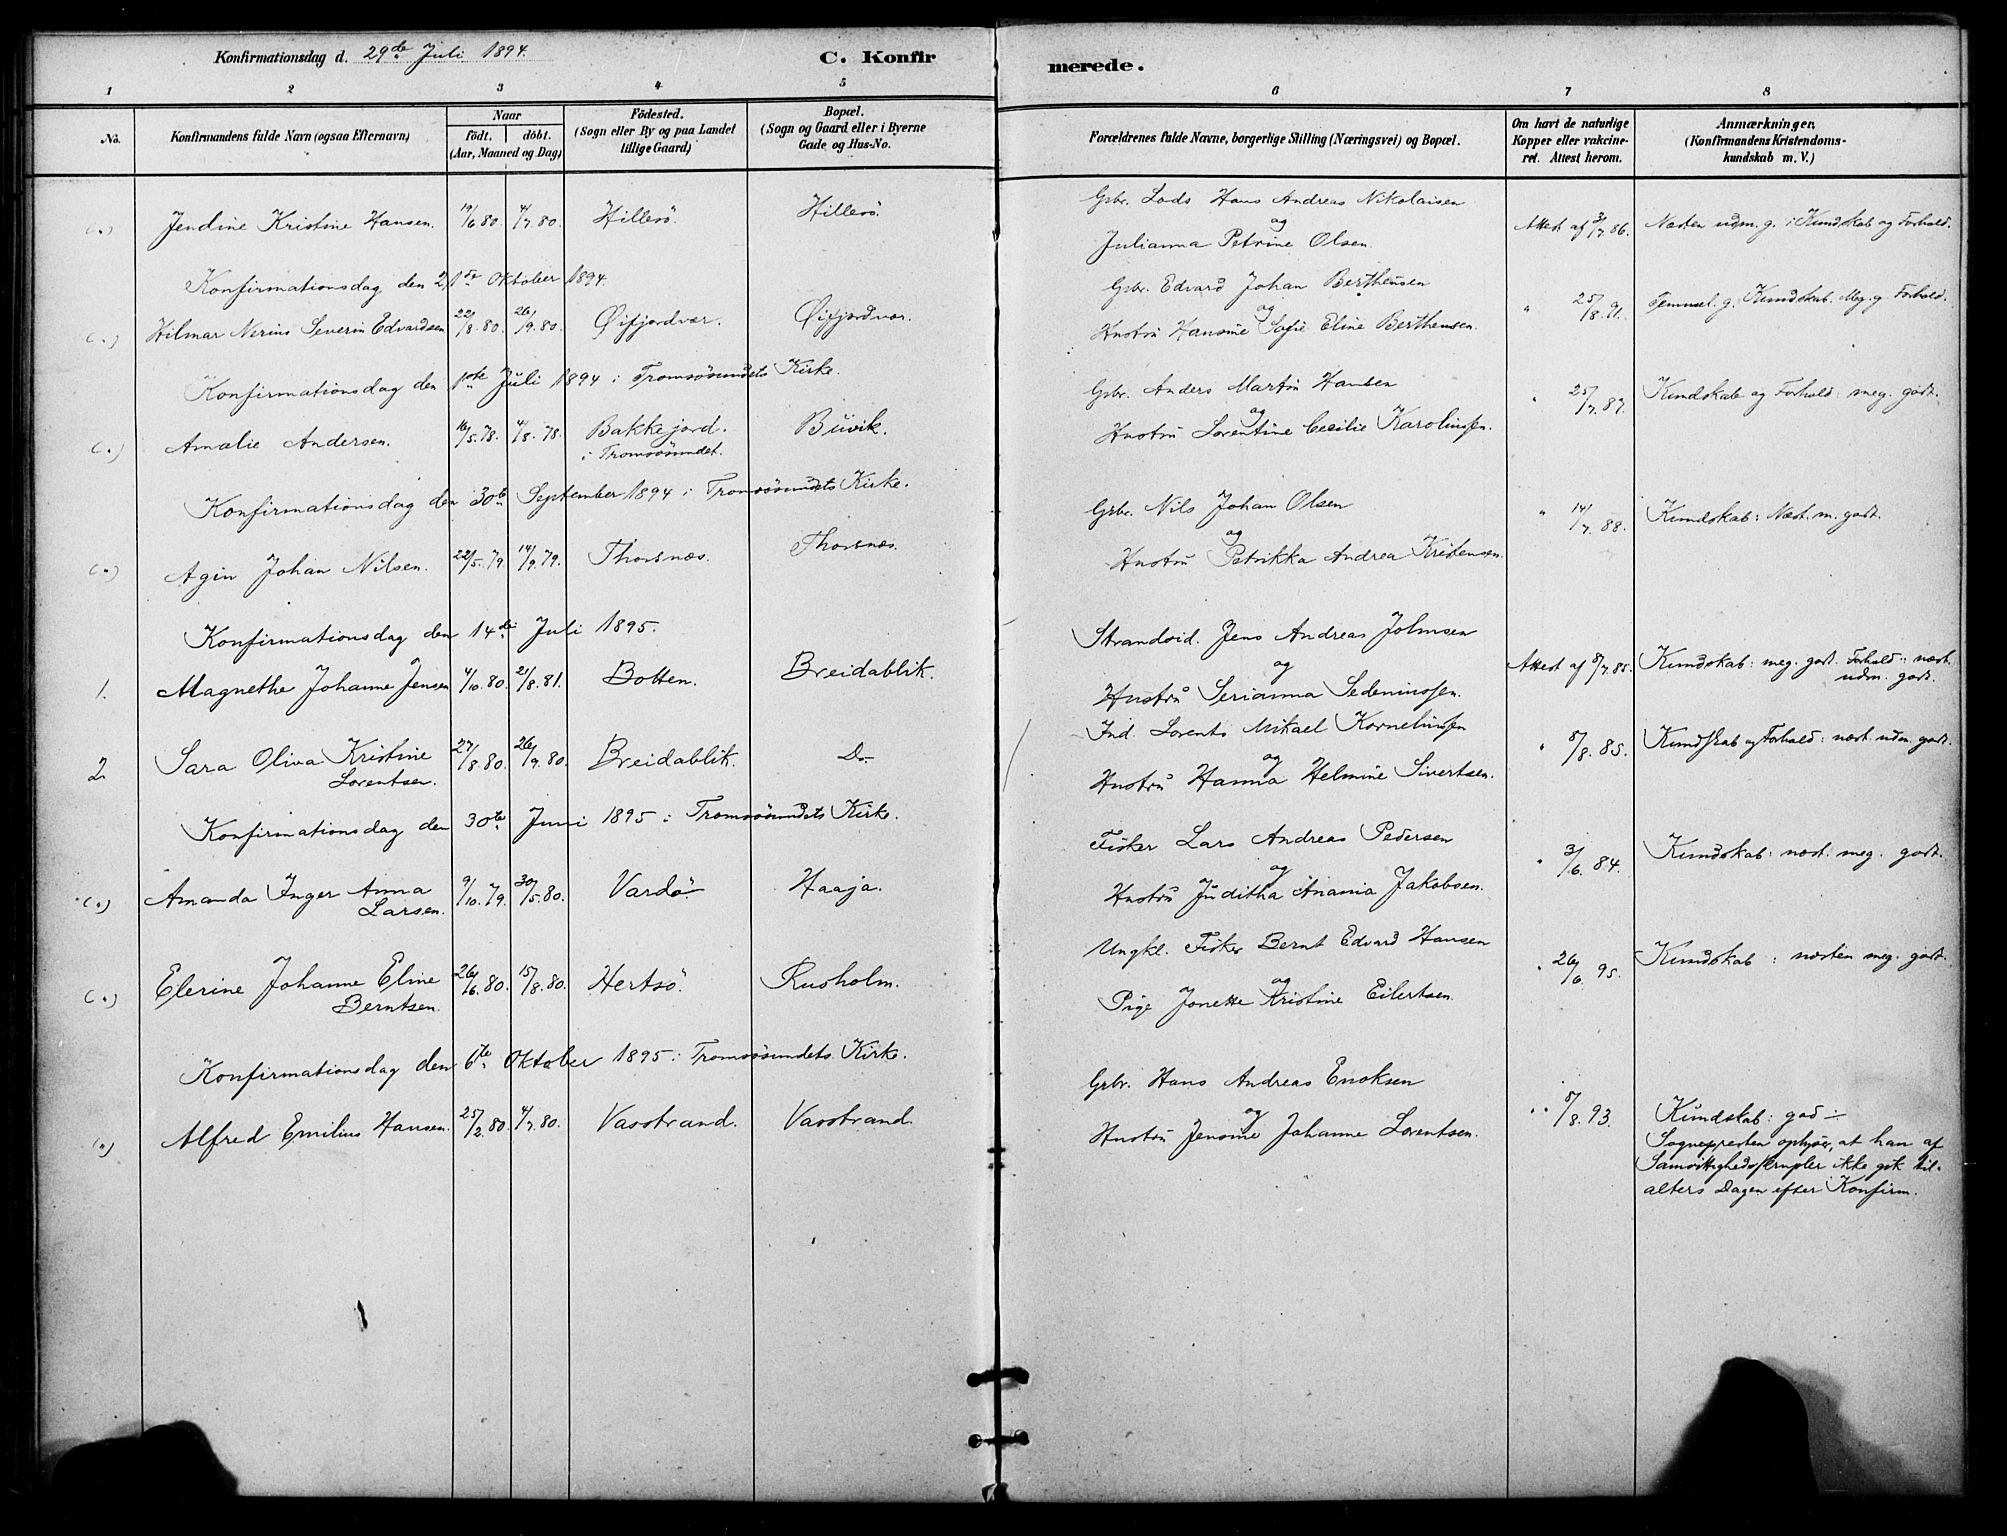 Konfirmationsdag d. 29de Juli 1894.
C. Konfirmerede.
1 2 3 4 5 6 7 8
No.
Konfirmandens fulde Navn (ogsaa Efternavn)
Naar
födt. döbt.
(Aar, Maaned og Dag)
Födested.
(Sogn eller By og paa Landet
tillige Gaard)
Bopæl.
(Sogn og Gaard eller i Byerne
Gade og Hus-No.
Forældrenes fulde Navne, borgerlige Stilling (Næringsvei) og Bopæl.
Om havt de naturlige
Kopper eller vakcine-
ret. Attest herom.
Anmærkninger,
(Konfirmandens Kristendoms-
kundskab m. V.)
Gbr. Lods Hans Andreas Nikolaisen
(") Jendine Kristine Hansen. 19/6 80. 4/7. 80. Hillesö. Hillesö. og Attest af 3/7. 86. Næsten udm. g. i Kundskab og Forhold.
Julianna Petrine Olsen.
Konfirmationsdag den 21de Oktober 1894.
Gbr. Edvard Johan Berthensen
(") Hilmar Nerius Severin Edvardsen 22/8. 80. 26/9. 80. Øifjordvær. Øifjordvær. og " 25/8. 91. Temmel. g. Kundskab. Meg. g. Forhold.
Hustru Hansine Sofie Eline Berthensen.
Konfirmationsdag den 1ste Juli 1894 i Tromsösundets Kirke.
Gbr. Anders Martin Hansen
(") Amalie Andersen. 16/5. 78. 4/8. 78. Bakkejord. Buvik. og " 25/7. 87. Kundskab og Forhold: meg. godt.
i Tromsösundet.
Hustru Lorentine Cecilie Karolinssen.
Konfirmationsdag den 30te September 1894 i Tromsösundets Kirke.
Gbr. Nils Johan Olsen
(") Agin Johan Nilsen. 22/5. 79 14/9. 79. Thorsnæs. Thorsnæs. og " 14/7. 88. Kundskab: Næst. m. godt.
Hustru Petrikka Andrea Kristensen
Konfirmationsdag den 14de Juli 1895.
Strandsid. Jens Andreas Johnsen
1. Magnethe Johanne Jensen 4/10. 80. 21/8. 81. Botten. Breidablik. og Attest af 8/7. 85. Kundskab: meg. godt. Forhold: næst.
udm. godt.
Hustru Serianna Sedeninssen.
2. Sara Oliva Kristine 27/8 80. 26/9. 80. Breidablik. Do. Ind. Lorents Mikael Kornelinssen
Lorentsen. og " 8/8. 85. Kundskab og Forhold: næst. udm. godt.
Hustru Hanna Helmine Sivertsen.
Konfirmationsdag den 30te Juni 1895 i Tromsösundets Kirke.
Fisker Lars Andreas Pedersen
(") Amanda Inger Anna 9/10. 79. 30/5. 80. Vardö. Haaja. og " 3/6. 84. Kundskab: næst. meg. godt.
Larsen.
Hustru Juditha Anania Jakobsen.
Ungkl. Fisker Bernt Edvard Hansen
(") Elerine Johanne Eline 26/6. 80. 15/8. 80. Hertsö. Rusholm. og " 26/6. 95. Kundskab: næsten meg. godt.
Berntsen
Pige Jonette Kristine Eilertsen.
Konfirmationsdag den 6te Oktober 1895 i Tromsösundets Kirke.
Gbr. Hans Andreas Enoksen
(") Alfred Emilius Hansen. 25/2. 80. 4/7. 80. Vasstrand. Vasstrand. og " " 8/8. 93. Kundskab: god ÷
Hustru Jensine Johanne Lorentsen.
Sognepresten oplyser, at han af
Samvittighedsskrupler ikke gik til-
alters Dagen efter Konfirm.